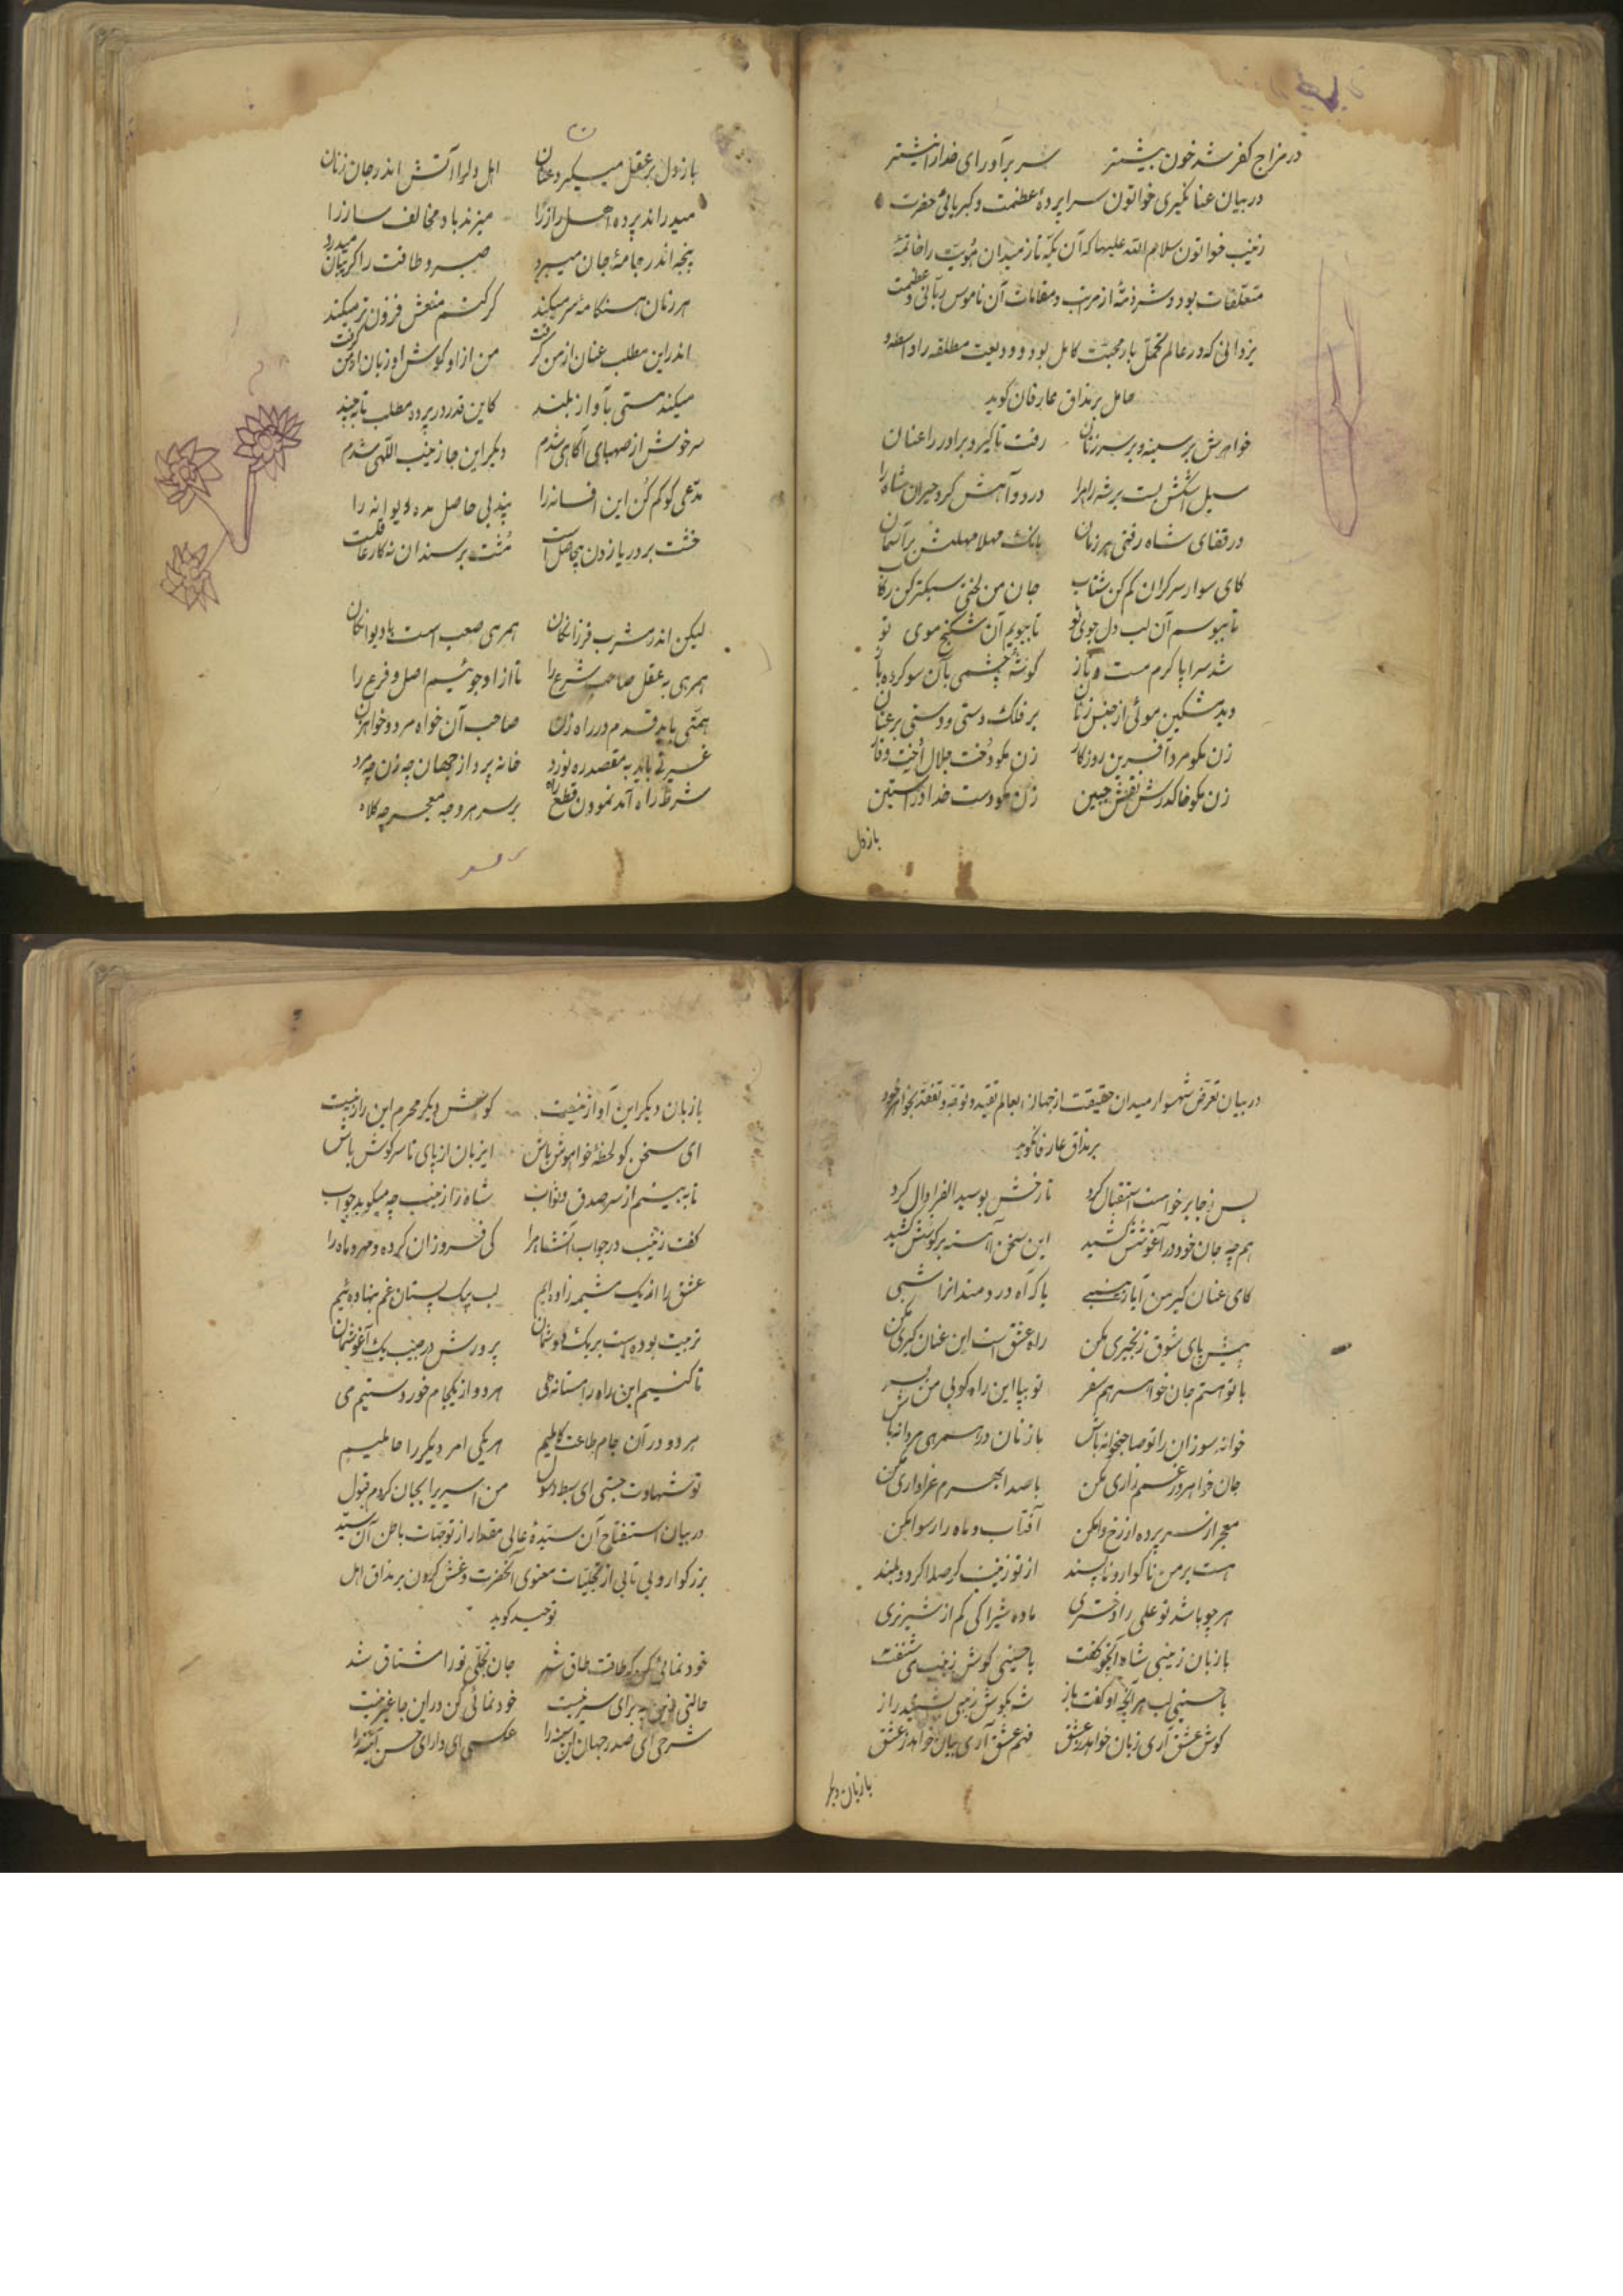 در مزاج کفر شد خون بیشتر سر برآور ای خدا را نیشتر
در بیان عنانگیری خواتون سراپردهٔ عظمت و کبریائی حضرت
زینب خواتون سلام الله علیها که آن یکه تاز میدان هویت را خاتمهٔ
متعلقات بود و شرذمهٔ از مرتب و مقامات آن ناموس ربانی و عظمت
یزدانی که در عالم تحمل بار محبت کامل بود و ودیعت مطلقه را واسطه و
حامل بر مذاق عارفان گوید
خواهرش بر سینه و بر سر زنان رفت تا گیرد برادر را عنان
سیل اشکش بست بر شه راه را دود آهش کرد حیران شاه را
در قفای شاه رفتی هر زمان بانک مهلا مهلنش بر آسمان
کای سوار سرگران کم کن شتاب جان من لختی سبکتر کن رکاب
تا ببوسم آن لب دل جوی تو تا ببویم آن شکنج موی تو
شه سراپا گرم مست و ناز گوشه چشمی بآن سو کرده باز
دید مشکین موئی از جنس زنان بر فلک دستی و دستی بر عنان
زن مگو مرد آفرین روزگار زن مگو دخت جلال اخت وقار
زن مگو خاک درش نقش جبین زن مگو دست خدا در آستین
باز دل
باز دل بر عقل میگیرد عنان اهل دل را آتش اندر جان زنان
میدراند پرده اهل راز را میزند با ما مخالف ساز را
پنجه اندر جامهٔ جان میبرد صبر و طاقت را گریبان میدرد
هر زمان هنگامهٔ سر میکند گر کنم منعش فزون تر میکند
اندر این مطلب عنان از من گرفت من از او گوش او زبان از من گرفت
میکند مستی بآواز بلند کاین قدر در پرده مطلب تا بچند
سرخوش از صهبای آگاهی شدم دیگر این جا زینب اللهی شدم
مدعی گو کم کن این افسانه را پند بی حاصل مده دیوانه را
خشت بر دریا زدن بیحاصل است مشت بر سندان نه کار عاقلست
لیکن اندر مشرب فرزانگان همرهی صعب است با دیوانگان
همرهی به عقل صاحب شرع را تا از او جوئیم اصل و فرع را
همتی باید قدم در راه زن صاحب آن خواه مرد و خواه زن
غیرتی باید به مقصد ره نورد خانه پرداز جهان چه زن چه مرد
شرط راه آمد نمودن قطع راه بر سر هرو چه معجر چه کلاه
در بیان تعرض شهسوار میدان حقیقت از جهان بعالم تقید و توجه و تفقد بخواهر خود
بر مذاق عارفان گوید
پس ز جا برخواست استقبال کرد تا رخش بوسید الف را دال کرد
هم چه جان خود در آغوشش کشید این سخن آهسته بر گوشش کشید
کای عنان گیر من آیا زینبی یا که آه دردمندان را شبی
پیش پای شوق زنجیری مکن راه عشق است این عنان گیری مکن
با تو هستم جان خواهر هم سفر تو بپا این راه کوبی من بسر
خوانه سوزان را تو صاحبخوانه باش با زنان در همرهی مردانه باش
جان خواهر در غمم زاری مکن با صدا بهرم عزاداری مکن
معجر از سر پرده از رخ وا مکن آفتاب و ماه را رسوا مکن
هست بر من ناگوار و ناپسند از تو زینب گر صدا گردد بلند
هر چو باشد تو علی را دختری ماده شیرا کی کم از شیر نری
با زبان زینبی شاه آنچه گفت با حسینی گوش زینب می شنفت
با حسینی لب هر آنچه او گفت باز شه بگوش زینبی بشنید راز
گوش عشق آری زبان خواهد ز عشق فهم عشق آری بیان خواهد ز عشق
با زبان دیگر
با زبان دیگر این آواز نیست گوش دیگر محرم این راز نیست
ای سخن گو لحظهٔ خواموش باش ای زبان از پای تا سر گوش باش
تا ببینم از سر صدق و ثواب شاه را زینب چه میگوید جواب
گفت زینب در جواب آن شاه را کی فروزان کرده و مهر و ماه را
عشق را از یک مشیمه زاده ایم لب بیک پستان غم بنهاده ئیم
تربیت بوده است بر یک دوشمان پرورش در جیب یک آغوشمان
تا کنیم این راه را مستانه طی هر دو از یکجام خوردستیم می
هر دو در آن جام طاعت کاملیم هر یکی امر دیگر را حاملیم
تو شهادت جستی ای سبط رسول من اسیری را بجان کردم قبول
در بیان استفتاح آن سیدهٔ عالی مقدار از توجهات باطن آن سید
بزرگوار و بی تابی از تجلیات معنوی آنحضرت و غش کردن بر مذاق اهل
توحید گوید
خود نمائی کن که طاقت طاق شد جان تجلی تو را مشتاق شد
حالتی زین به برای سیر نیست خود نمائی کن در این جا غیر نیست
شرحی ای صدر جهان این سینه را عکسی ای دارای حسن آئینه را